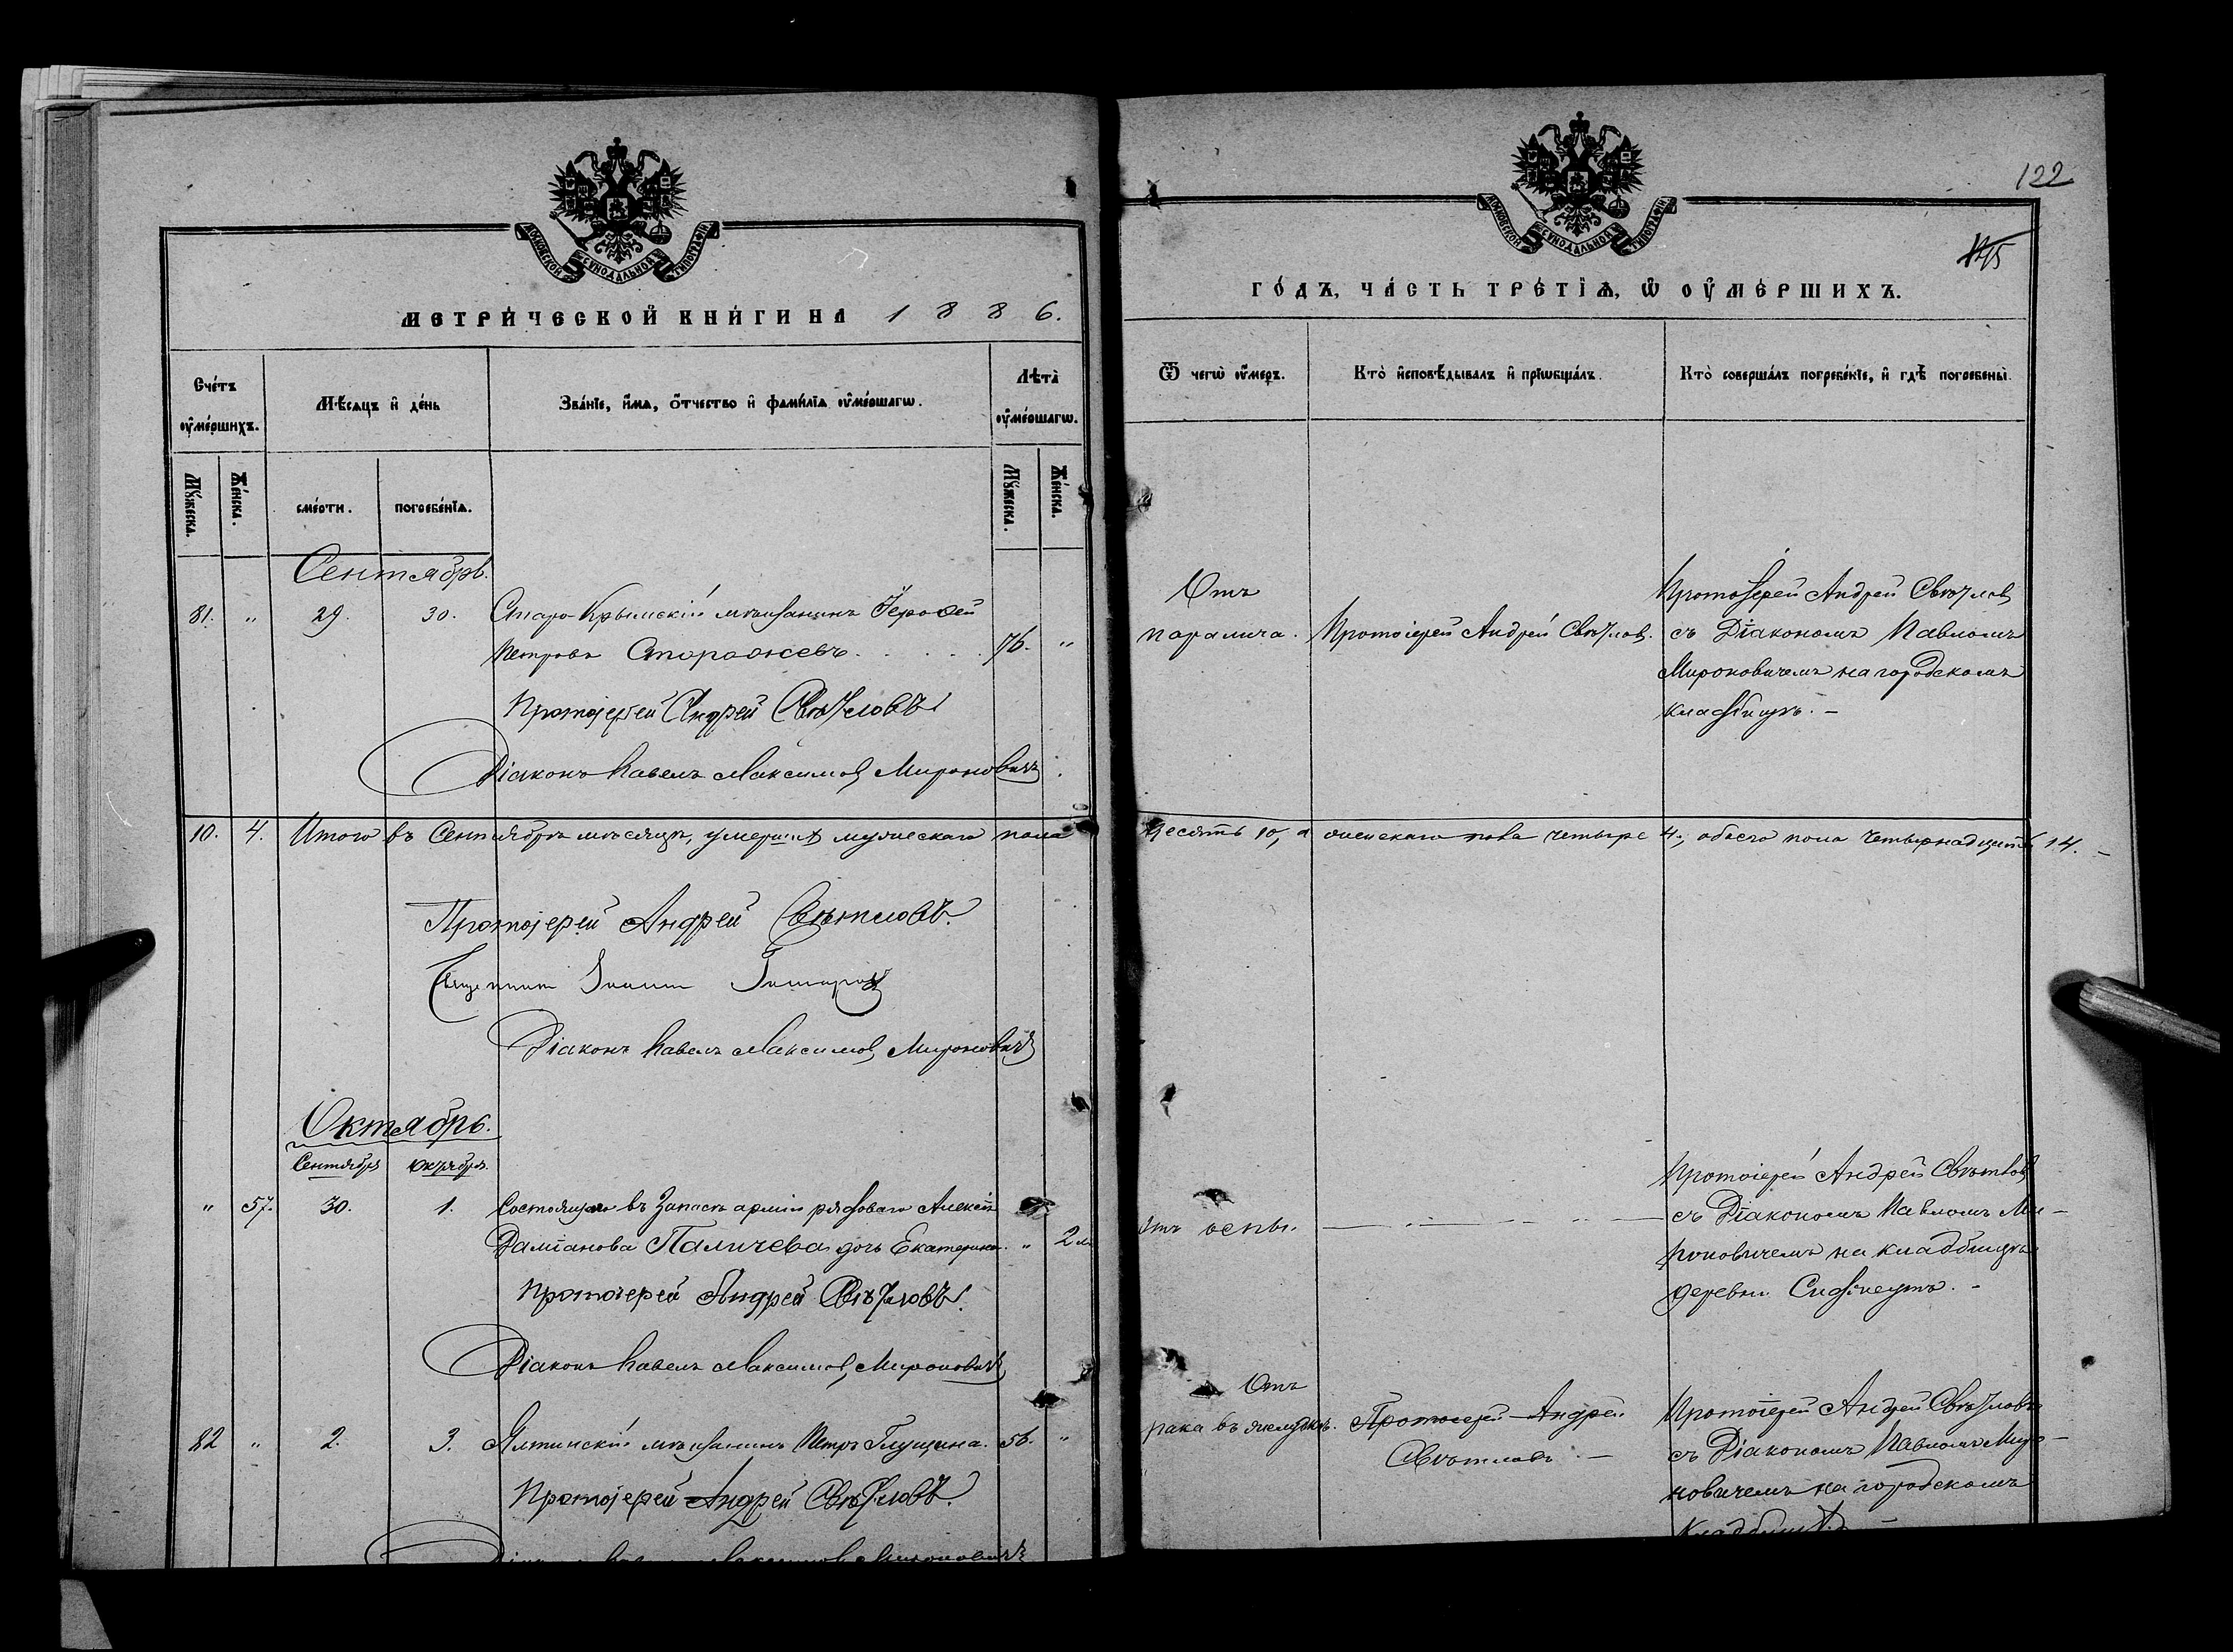 МОСКОВСКОЙ СѴНОДАЛЬНОЙ ТИПОГРАФІИ
МЕТРИ́ЧЕСКОЙ КНИ́ГИ НА 1886.
Сче́тъ оу҆ме́ршихъ.
Мѣ́сяцъ и҆ де́нь
Зва́нїе, и҆́мѧ, ѻ҆́тчество и҆ фами́лїѧ оу҆ме́ршагѡ.
Лѣта̀ оу҆ме́ршагѡ.
Мꙋ́жеска.
Же́нска.
сме́рти.
погребе́нїѧ.
Мꙋ́жеска.
Же́нска.
Сентябрь.
81. " 29. 30. Старо-Крымскій мѣщанинъ Іерофей
Петровъ Сторожевъ. 76. "
Протоіерей Андрей Свѣтловъ
Діаконъ Павелъ Максимов Мироновичъ
10. 4. Итого въ Сентябрѣ мѣсяцѣ, умершихъ мужескаго пола
Протоіерей Андрей Свѣтловъ.
Священникъ Іоаннъ
Діаконъ Павелъ Максимов Мироновичъ
Октябрь.
Сентября Октября.
" 57. 30. 1. Состоящаго въ Запасѣ арміи рядоваго Алексѣя
Даміанова Паличева дочь Екатерина. " 2 м.
Протоіерей Андрей Свѣтловъ.
Діаконъ Павелъ Максимов Мироновичъ
82 " 2. 3. Ялтинскій мѣщанинъ Петръ Глущина. 56. "
Протоіерей Андрей Свѣтловъ.
Діаконъ Павелъ Максимов Мироновичъ
122
МОСКОВСКОЙ СѴНОДАЛЬНОЙ ТИПОГРАФІИ
ГО́ДЪ, ЧА́СТЬ ТРЕ́ТІѦ, Ѡ҆ ОУ҆МЕ́РШИХЪ.
Ѿ чегѡ̀ оу҆́меръ.
Кто̀ и҆сповѣ́дывалъ и҆ прїѡбща́лъ.
Кто̀ соверша́лъ погребе́нїе, и҆ гдѣ̀ погребены̀.
Отъ
паралича. Протоіерей Андрей Свѣтлов.
Протоіерей Андрей Свѣтлов
съ Діакономъ Павломъ
Мироновичемъ на городскомъ
кладбищѣ. –
десять 10, а женскаго пола четыре 4., обоего пола четырнадцать 14. –
Отъ оспы.
Протоіерей Андрей Свѣтлов
съ Діакономъ Павломъ Ми-
роновичемъ на кладбищѣ
деревни
Отъ
рака въ желудкѣ. Протоіерей Андрей
Свѣтловъ. –
Протоіерей Андрей Свѣтловъ
съ Діакономъ Павломъ Миро-
новичемъ на городскомъ
кладбищѣ. –